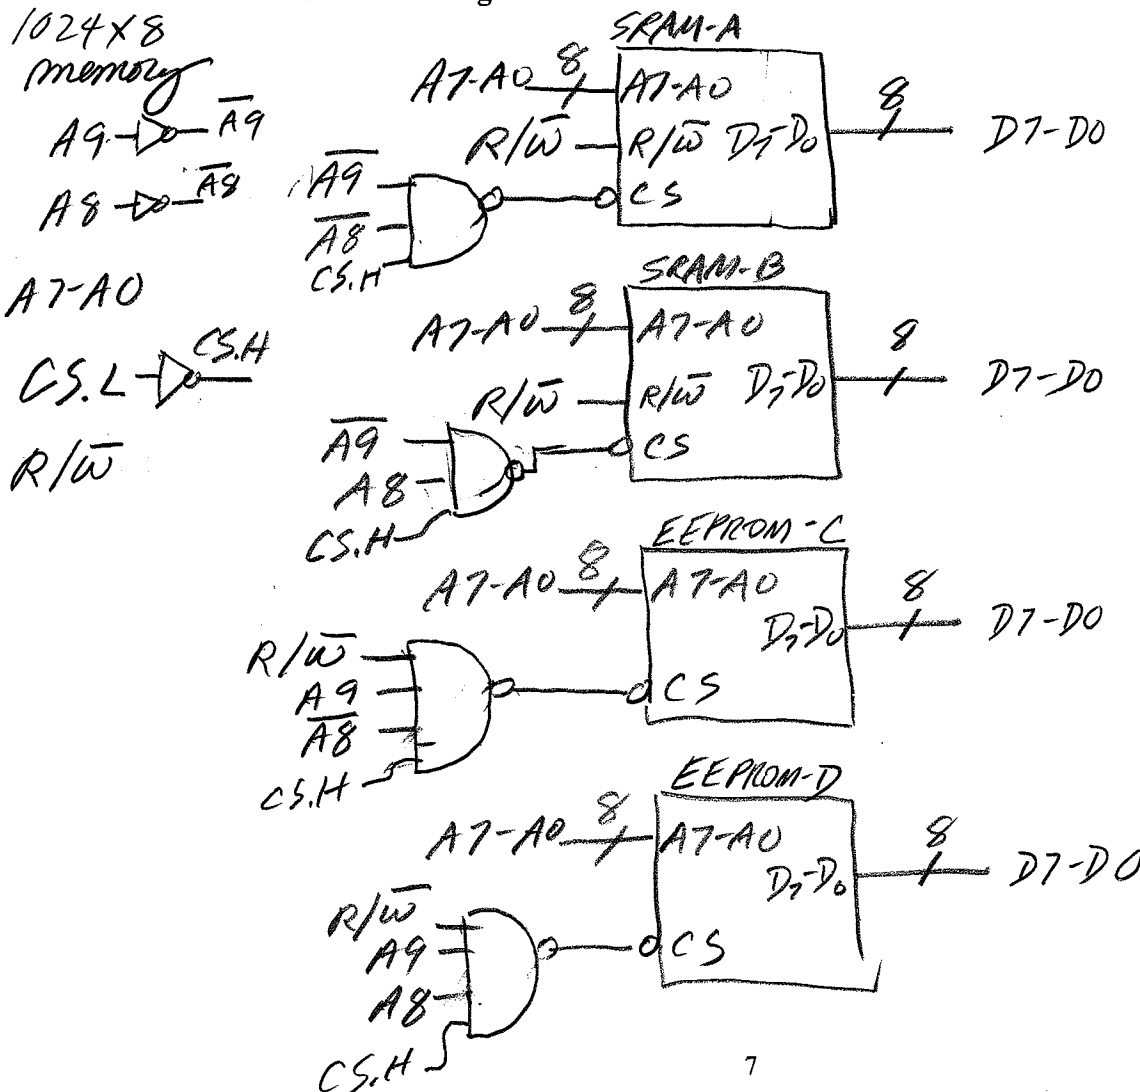 1024X8
memory
A9 A̅9̅
A8 A̅8̅
A7-A0
CS.L CS.H
R/W̅
SRAM-A
A7-A0 8 A7-A0
R/W̅ R/W̅ D7-D0 8 D7-D0
A̅9̅
A̅8̅
CS.H
CS
SRAM-B
A7-A0 8 A7-A0
R/W̅ R/W̅ D7-D0 8 D7-D0
A̅9̅
A8
CS.H
CS
EEPROM-C
A7-A0 8 A7-A0
D7-D0 8 D7-D0
R/W̅
A9
A̅8̅
CS.H
CS
EEPROM-D
A7-A0 8 A7-A0
D7-D0 8 D7-D0
R/W̅
A9
A8
CS.H
CS
7